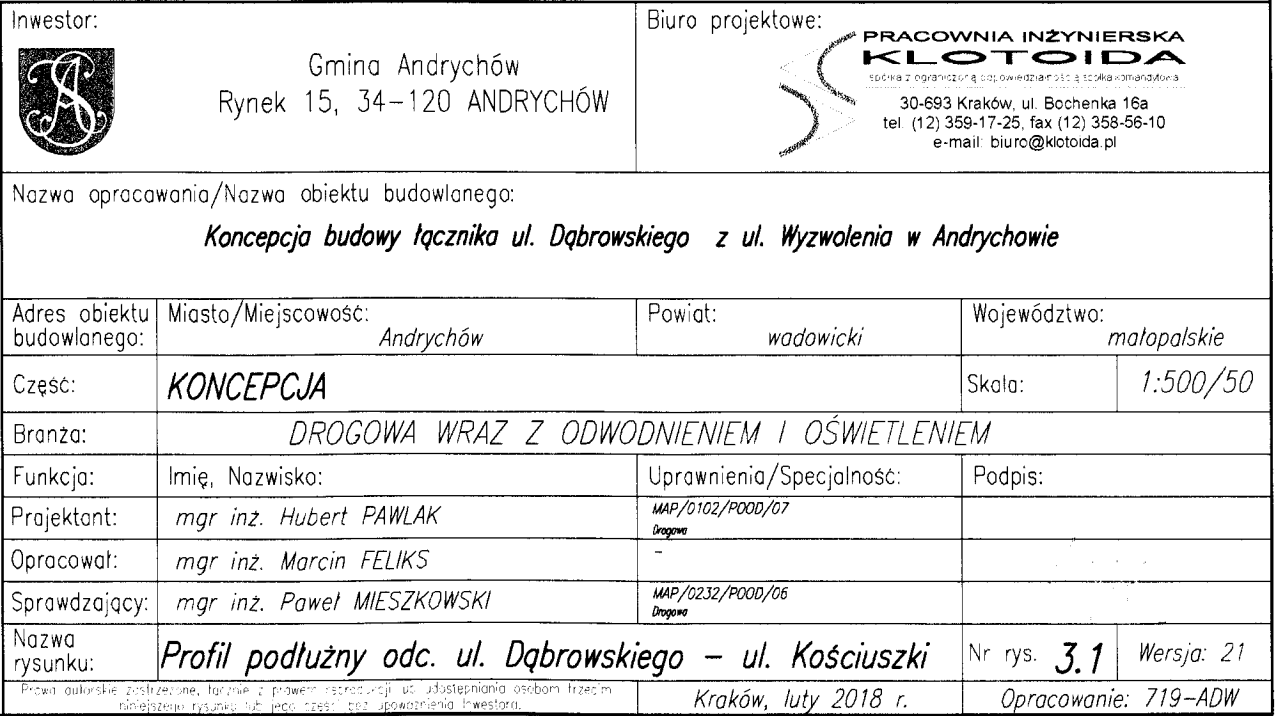 Inwestor:
Gmina Andrychów
Rynek 15, 34-120 ANDRYCHÓW
Biuro projektowe:
PRACOWNIA INŻYNIERSKA
KLOTOIDA
spółka z ograniczoną odpowiedzialnością spółka komandytowa
30-693 Kraków, ul. Bochenka 16a
tel. (12) 359-17-25, fax (12) 358-56-10
e-mail: biuro@klotoida.pl
Nazwa opracowania/Nazwa obiektu budowlanego:
Koncepcja budowy łącznika ul. Dąbrowskiego z ul. Wyzwolenia w Andrychowie
Adres obiektu budowlanego:
Miasto/Miejscowość:
Andrychów
Powiat:
wadowicki
Województwo:
małopolskie
Część:
KONCEPCJA
Skala:
1:500/50
Branża:
DROGOWA WRAZ Z ODWODNIENIEM I OŚWIETLENIEM
Funkcja:
Imię, Nazwisko:
Uprawnienia/Specjalność:
Podpis:
Projektant:
mgr inż. Hubert PAWLAK
MAP/0102/POOD/07
Drogowa
Opracował:
mgr inż. Marcin FELIKS
-
Sprawdzający:
mgr inż. Paweł MIESZKOWSKI
MAP/0232/POOD/06
Drogowa
Nazwa rysunku:
Profil podłużny odc. ul. Dąbrowskiego – ul. Kościuszki
Nr rys. 3.1
Wersja: 21
Prawa autorskie zastrzeżone, łącznie z prawem reprodukcji udostępniania osobom trzecim
niniejszego rysunku lub jego części bez upoważnienia Inwestora.
Kraków, luty 2018 r.
Opracowanie: 719-ADW